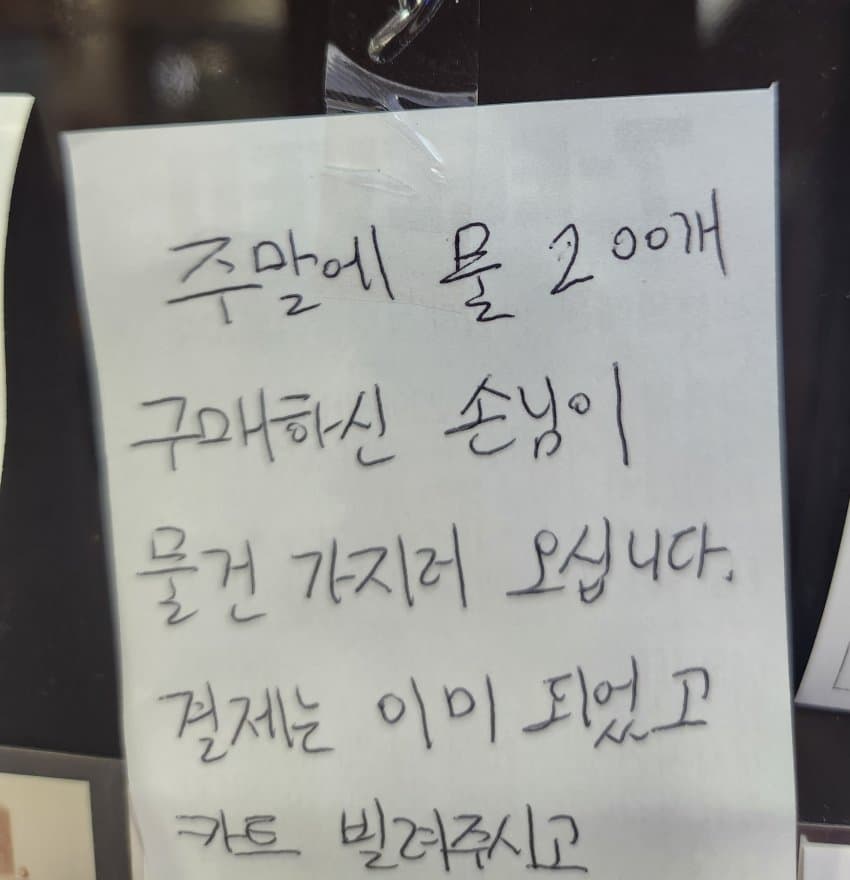 주말에 물 200개
구매하신 손님이
물건 가지러 오십니다.
결제는 이미 되었고
카트 빌려주시고